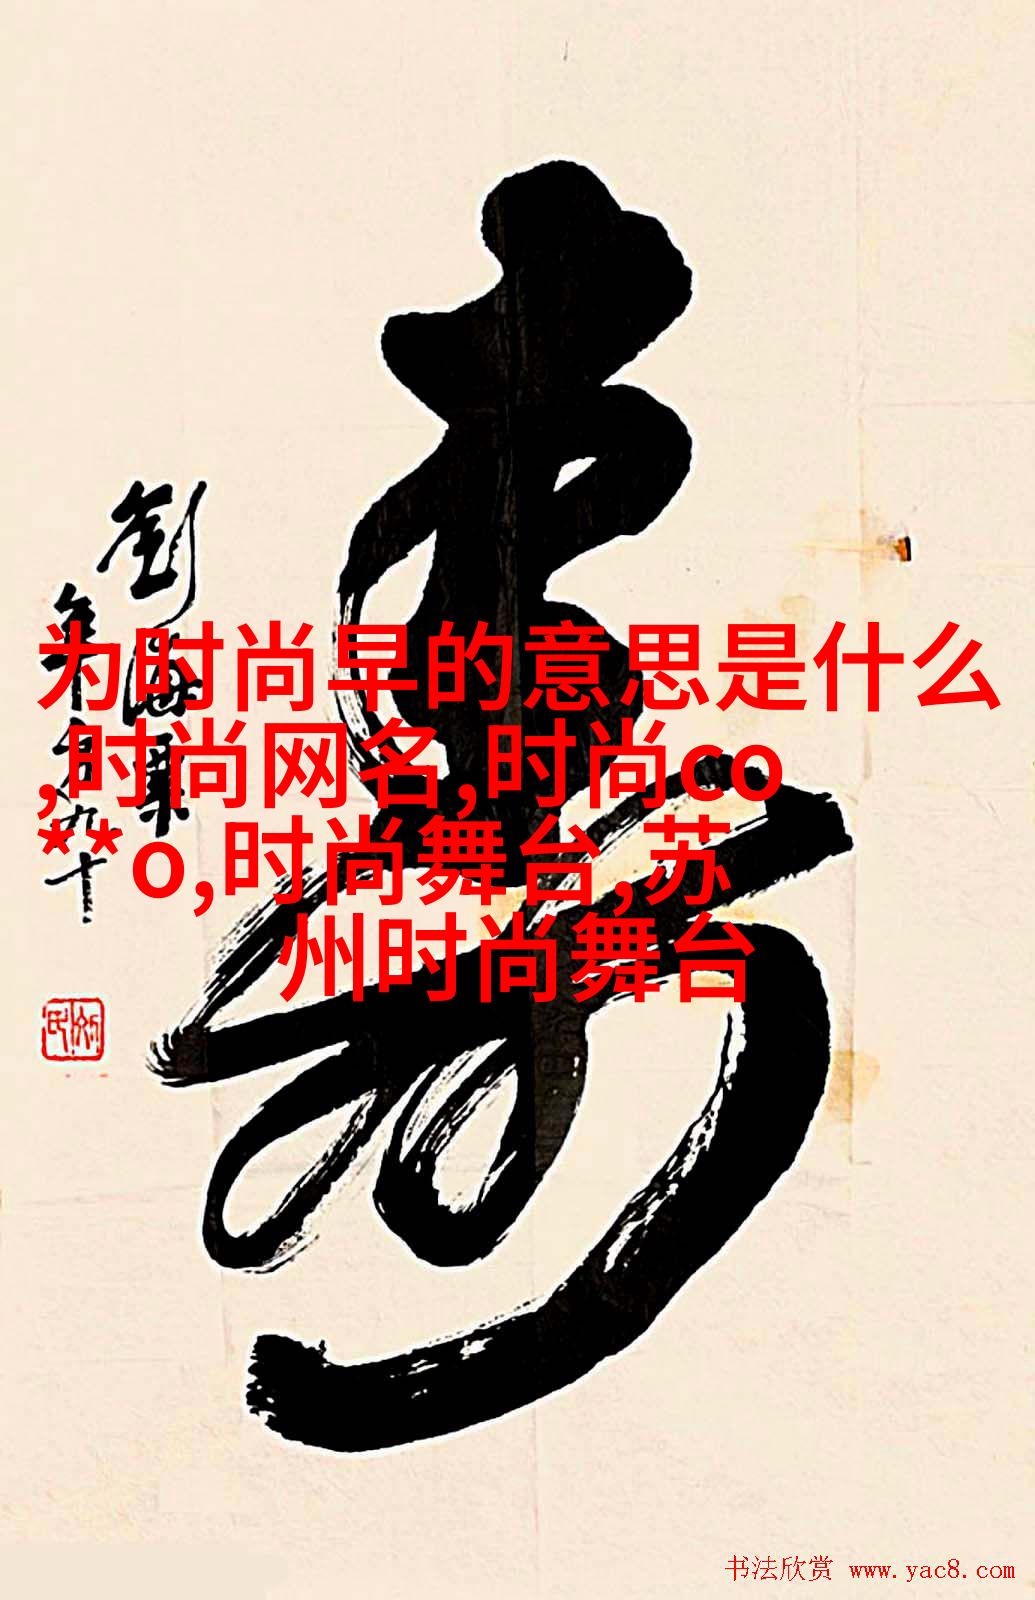 寿
劉海粟
年方九十
为时尚早的意思是什么
,时尚网名,时尚co
**o,时尚舞台,苏
州时尚舞台
书法欣赏 www.yac8.com